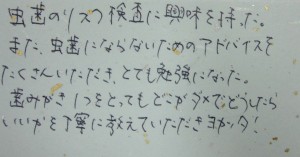 虫歯のリスク検査に興味を持った。
また、虫歯にならないためのアドバイスを
たくさんいただき、とても勉強になった。
歯みがき1つをとってもどこがダメで、どうしたら
いいかを丁寧に教えていただきヨカッタ!